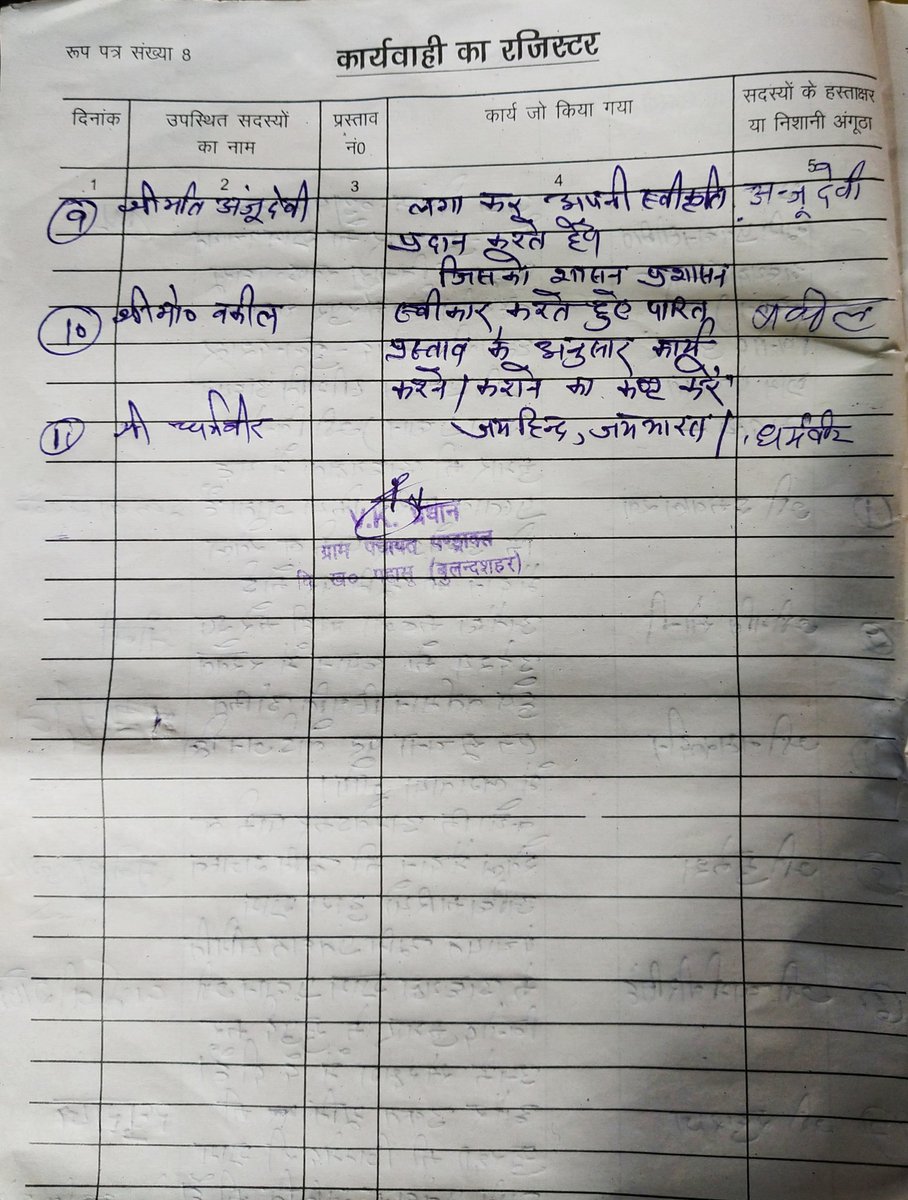 रूप पत्र संख्या 8
कार्यवाही का रजिस्टर
दिनांक उपस्थित सदस्यों का नाम प्रस्ताव नं0 कार्य जो किया गया सदस्यों के हस्ताक्षर या निशानी अंगूठा
1 2 3 4 5
9 श्रीमति अंजू देवी लगा कर अपनी स्वीकृति अन्जू देवी
प्रदान करते हैं।
जिसको शासन प्रशासन
10 श्री मो० वकील स्वीकार करते हुए पारित वकील
प्रस्ताव के अनुसार कार्य
करने / कराने का कष्ट करें
11 श्री धर्मवीर जयहिन्द, जयभारत / धर्मवीर
प्रधान
ग्राम पंचायत
वि ख० पहासू (बुलन्दशहर)